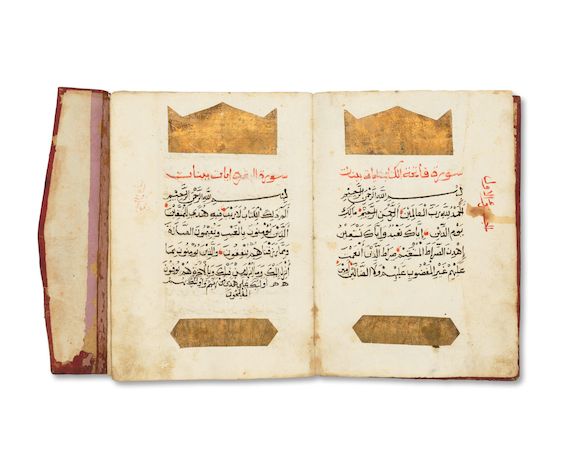 سورة فاتحة الكتاب ايات بينات
الجزء الاول
بسم الله الرحمن الرحيم
الحمد لله رب العالمين الرحمن الرحيم ملك
يوم الدين اياك نعبد واياك نستعين
اهدنا الصراط المستقيم صراط الذين انعمت
عليهم غير المغضوب عليهم ولا الضالين امين
سورة البقرة ايات بينات
بسم الله الرحمن الرحيم
الم ذلك الكتاب لا ريب فيه هدى للمتقين
الذين يومنون بالغيب ويقيمون الصلاة
ومما رزقناهم ينفقون والذين يومنون بما
انزل اليك وما انزل من قبلك وبالاخرة هم يوقنون
اولئك على هدى من ربهم واولئك هم
المفلحون